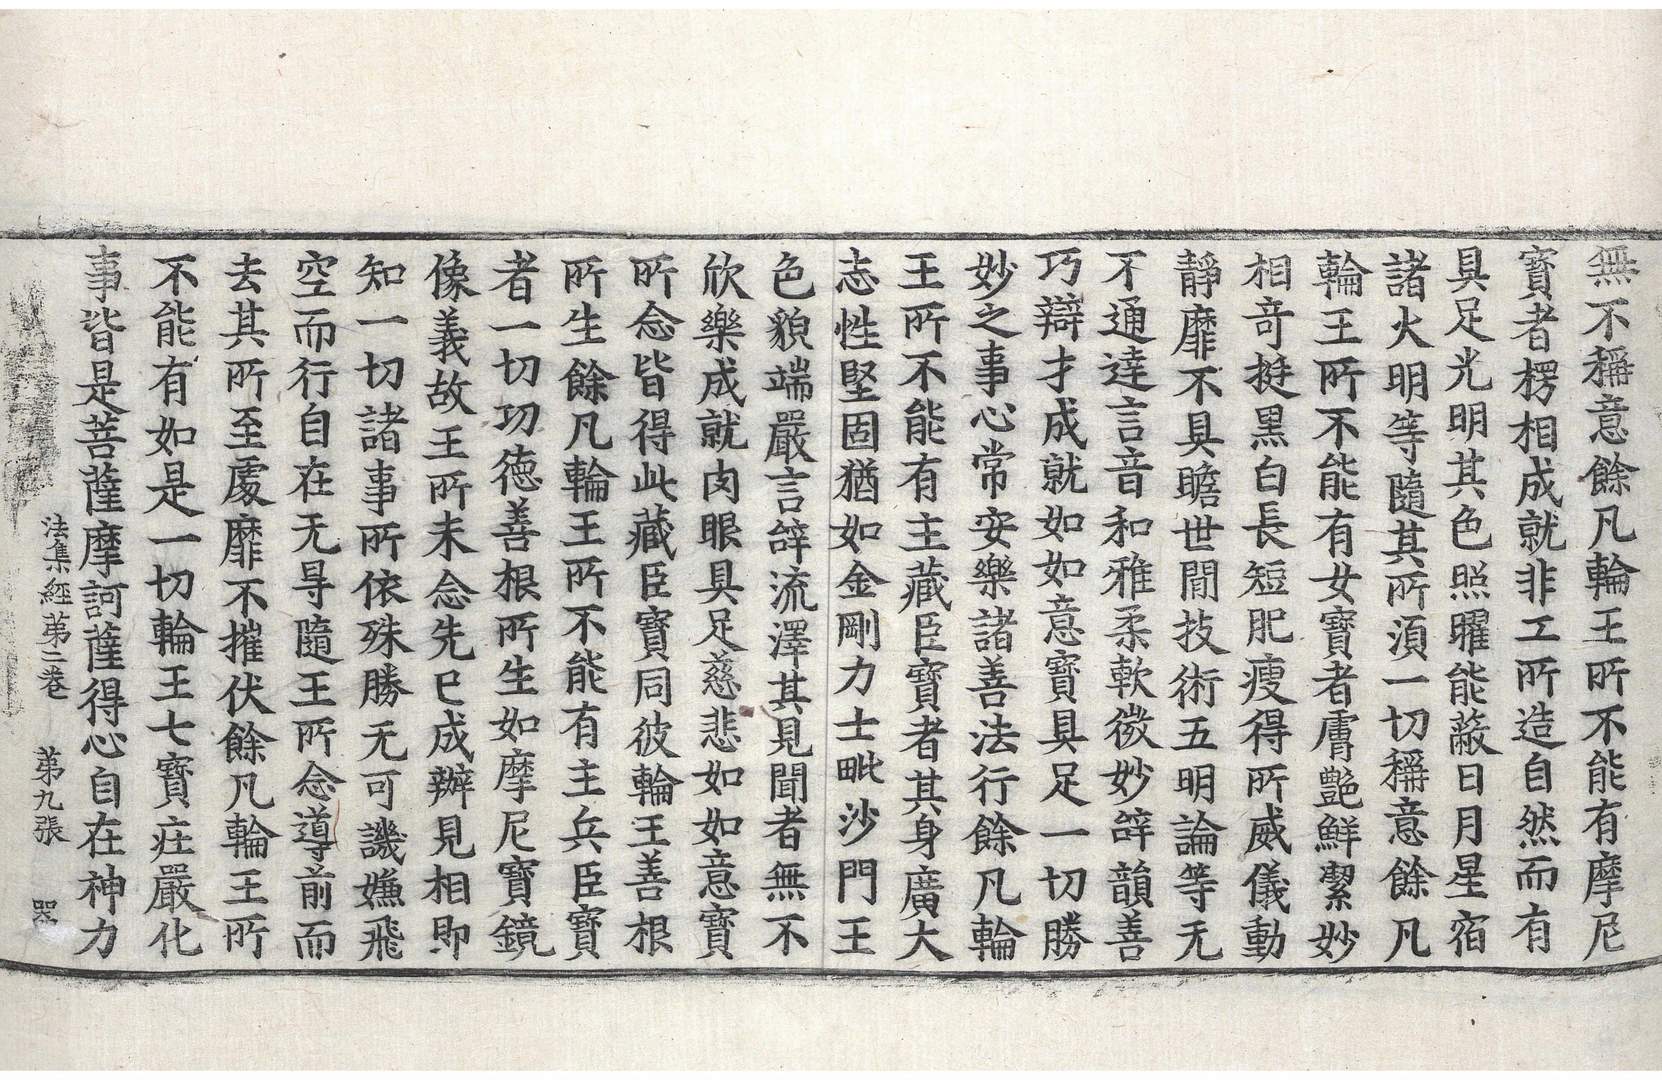 無不稱意餘凡輪王所不能有摩尼
寳者楞相成就非工所造自然而有
具足光明其色照曜能蔽日月星宿
諸火明等隨其所須一切稱意餘凡
輪王所不能有女寳者膚艶鮮潔妙
相竒挺黒白長短肥瘦得所威儀動
靜靡不具瞻世間技術五明論等无
不通達言音和雅柔軟微妙辝韻善
巧辯才成就如如意寳具足一切勝
妙之事心常安樂諸善法行餘凡輪
王所不能有主藏臣寳者其身廣大
志性堅固猶如金剛力士毗沙門王
色貌端嚴言辝流澤其見聞者無不
欣樂成就肉眼具足慈悲如如意寳
所念皆得此藏臣寳同彼輪王善根
所生餘凡輪王所不能有主兵臣寳
者一切功德善根所生如摩尼寳鏡
像義故王所未念先已成辦見相即
知一切諸事所依殊勝无可譏嫌飛
空而行自在无㝵隨王所念導前而
去其所至處靡不摧伏餘凡輪王所
不能有如是一切輪王七寳莊嚴化
事皆是菩薩摩訶薩得心自在神力
法集經苐二卷 苐九張 器